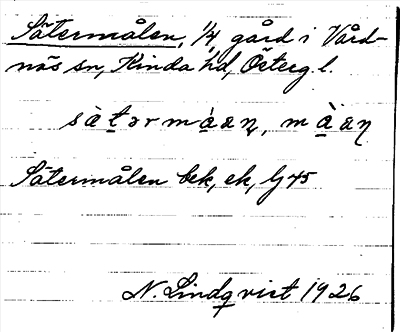 Sätermålen, 1/4 gård i Vård-
näs sn, Kinda hd, Österg l.
Sätermålen bek, ek, Lj 45
N. Lindqvist 1926